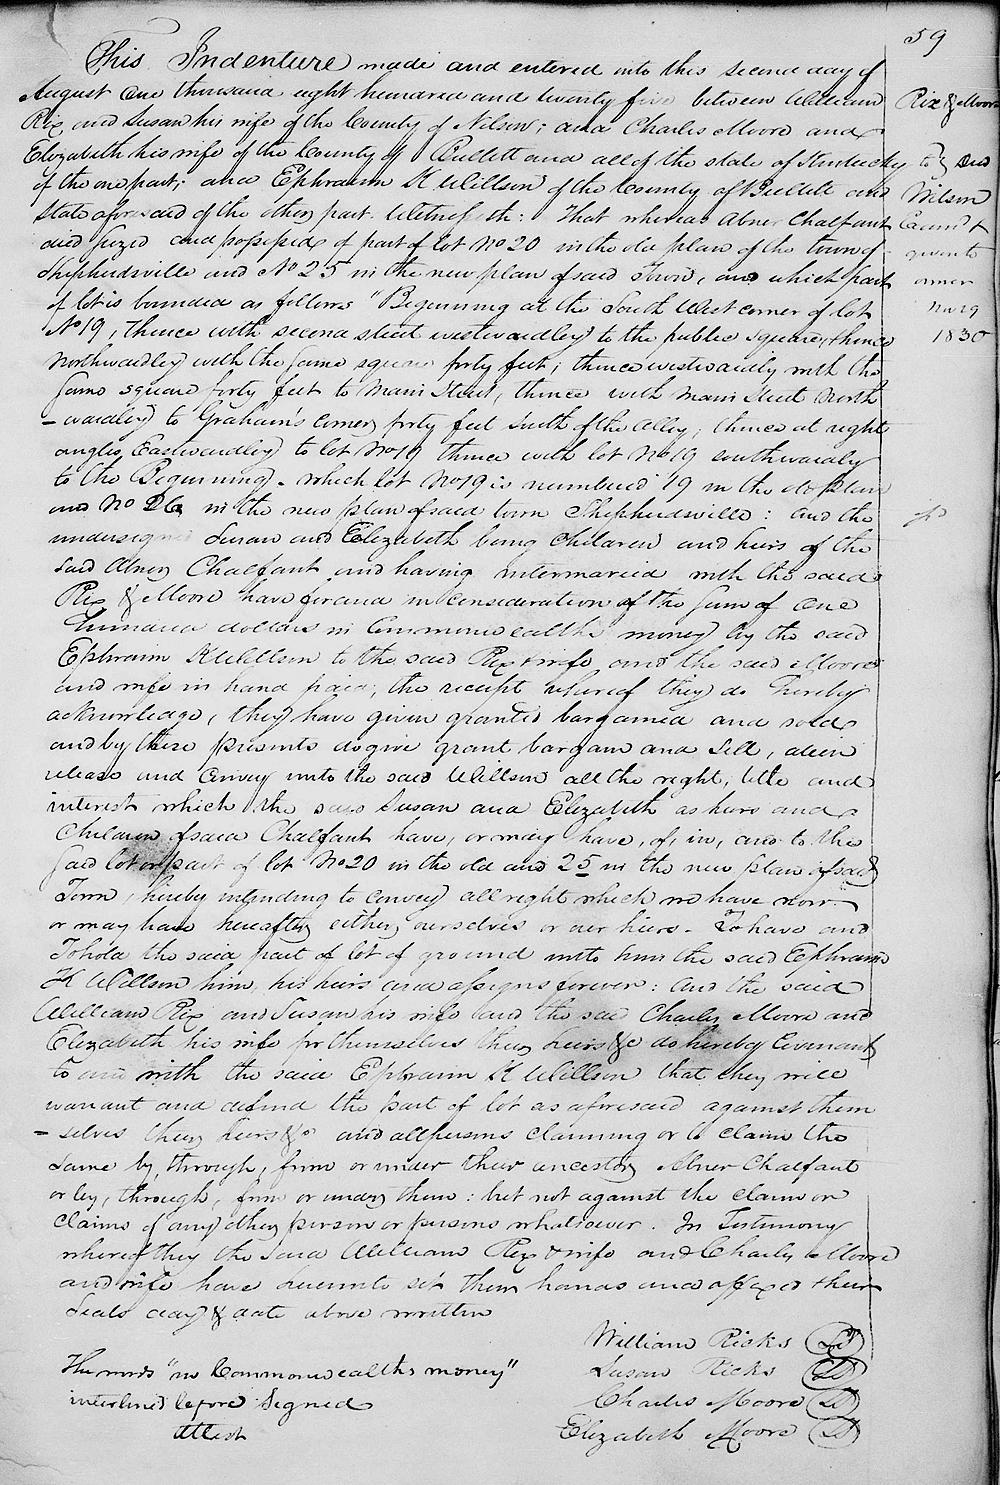 59
This Indenture made and entered into this second day of
August One thousand eight hundred and twenty five between William
Rix and Susan his wife of the County of Nelson; and Charles Moore and
Elizabeth his wife of the County of Bullitt and all of the state of Kentucky
of the one part; and Ephraim K Willson of the County of Bullitt and
State aforesaid of the other part. Witnesseth: That whereas Abner Chalfant
died seized and possessed of part of lot No 20 in the old plan of the town of
Shepherdsville and No 25 in the new plan of said Town, and which part
of lot is bounded as follows "Beginning at the South West corner of lot
No 19, Thence with second street westwardley to the public square, thence
Northwardley with the same square forty feet; thence westwardly with the
same square forty feet to Main Street, thence with Main Street North
-wardley to Graham's corner forty feet South of the Alley, thence at right
angles Eastwardley to lot No 19 thence with lot No 19 southwardly
to the Beginning. which lot No 19 is numbered 19 in the old plan
and No 26 in the new plan of said town Shepherdsville: and the
undersigned Susan and Elizabeth being Children and heirs of the
said Abner Chalfant and having intermarried with the said
Rix & Moore have for and in consideration of the sum of One
hundred dollars in Commonwealths money by the said
Ephraim K Willson to the said Rix & wife and the said Moore
and wife in hand paid, the receipt whereof they do hereby
acknowledge, they have given granted bargained and sold
and by these presents do give grant bargain and sell, alien
release and Convey unto the said Willson all the right, title and
interest which the said Susan and Elizabeth as heirs and
Children of said Chalfant have, or may have, of, in, and to the
said lot or part of lot No 20 in the old and 25 in the new plan of said
Town, hereby intending to convey all right which we have now
or may have hereafter either ourselves or our heirs. To have and
To hold the said part of lot of ground unto him the said Ephraim
K Willson him, his heirs and assigns forever: and the said
William Rix and Susan his wife and the said Charles Moore and
Elizabeth his wife for themselves their heirs &c do hereby Covenant
to and with the said Ephraim K Willson that they will
warrant and defend the part of lot as aforesaid against them
-selves their heirs &c and all persons claiming or to claim the
same by, through, from or under their ancestor Abner Chalfant
or by, through, from or under them: but not against the claim or
claims of any other person or persons whatsoever. In Testimony
whereof they the said William Rix & wife and Charles Moore
and wife have hereunto set their hands and affixed their
seals day & date above written
William Ricks
Susan Ricks
Charles Moore
Elizabeth Moore
The words "in Commonwealths money"
interlined before Signed
Attest
Rix & Moore
to Deed
Wilson
Examd &
given to
owner
1830